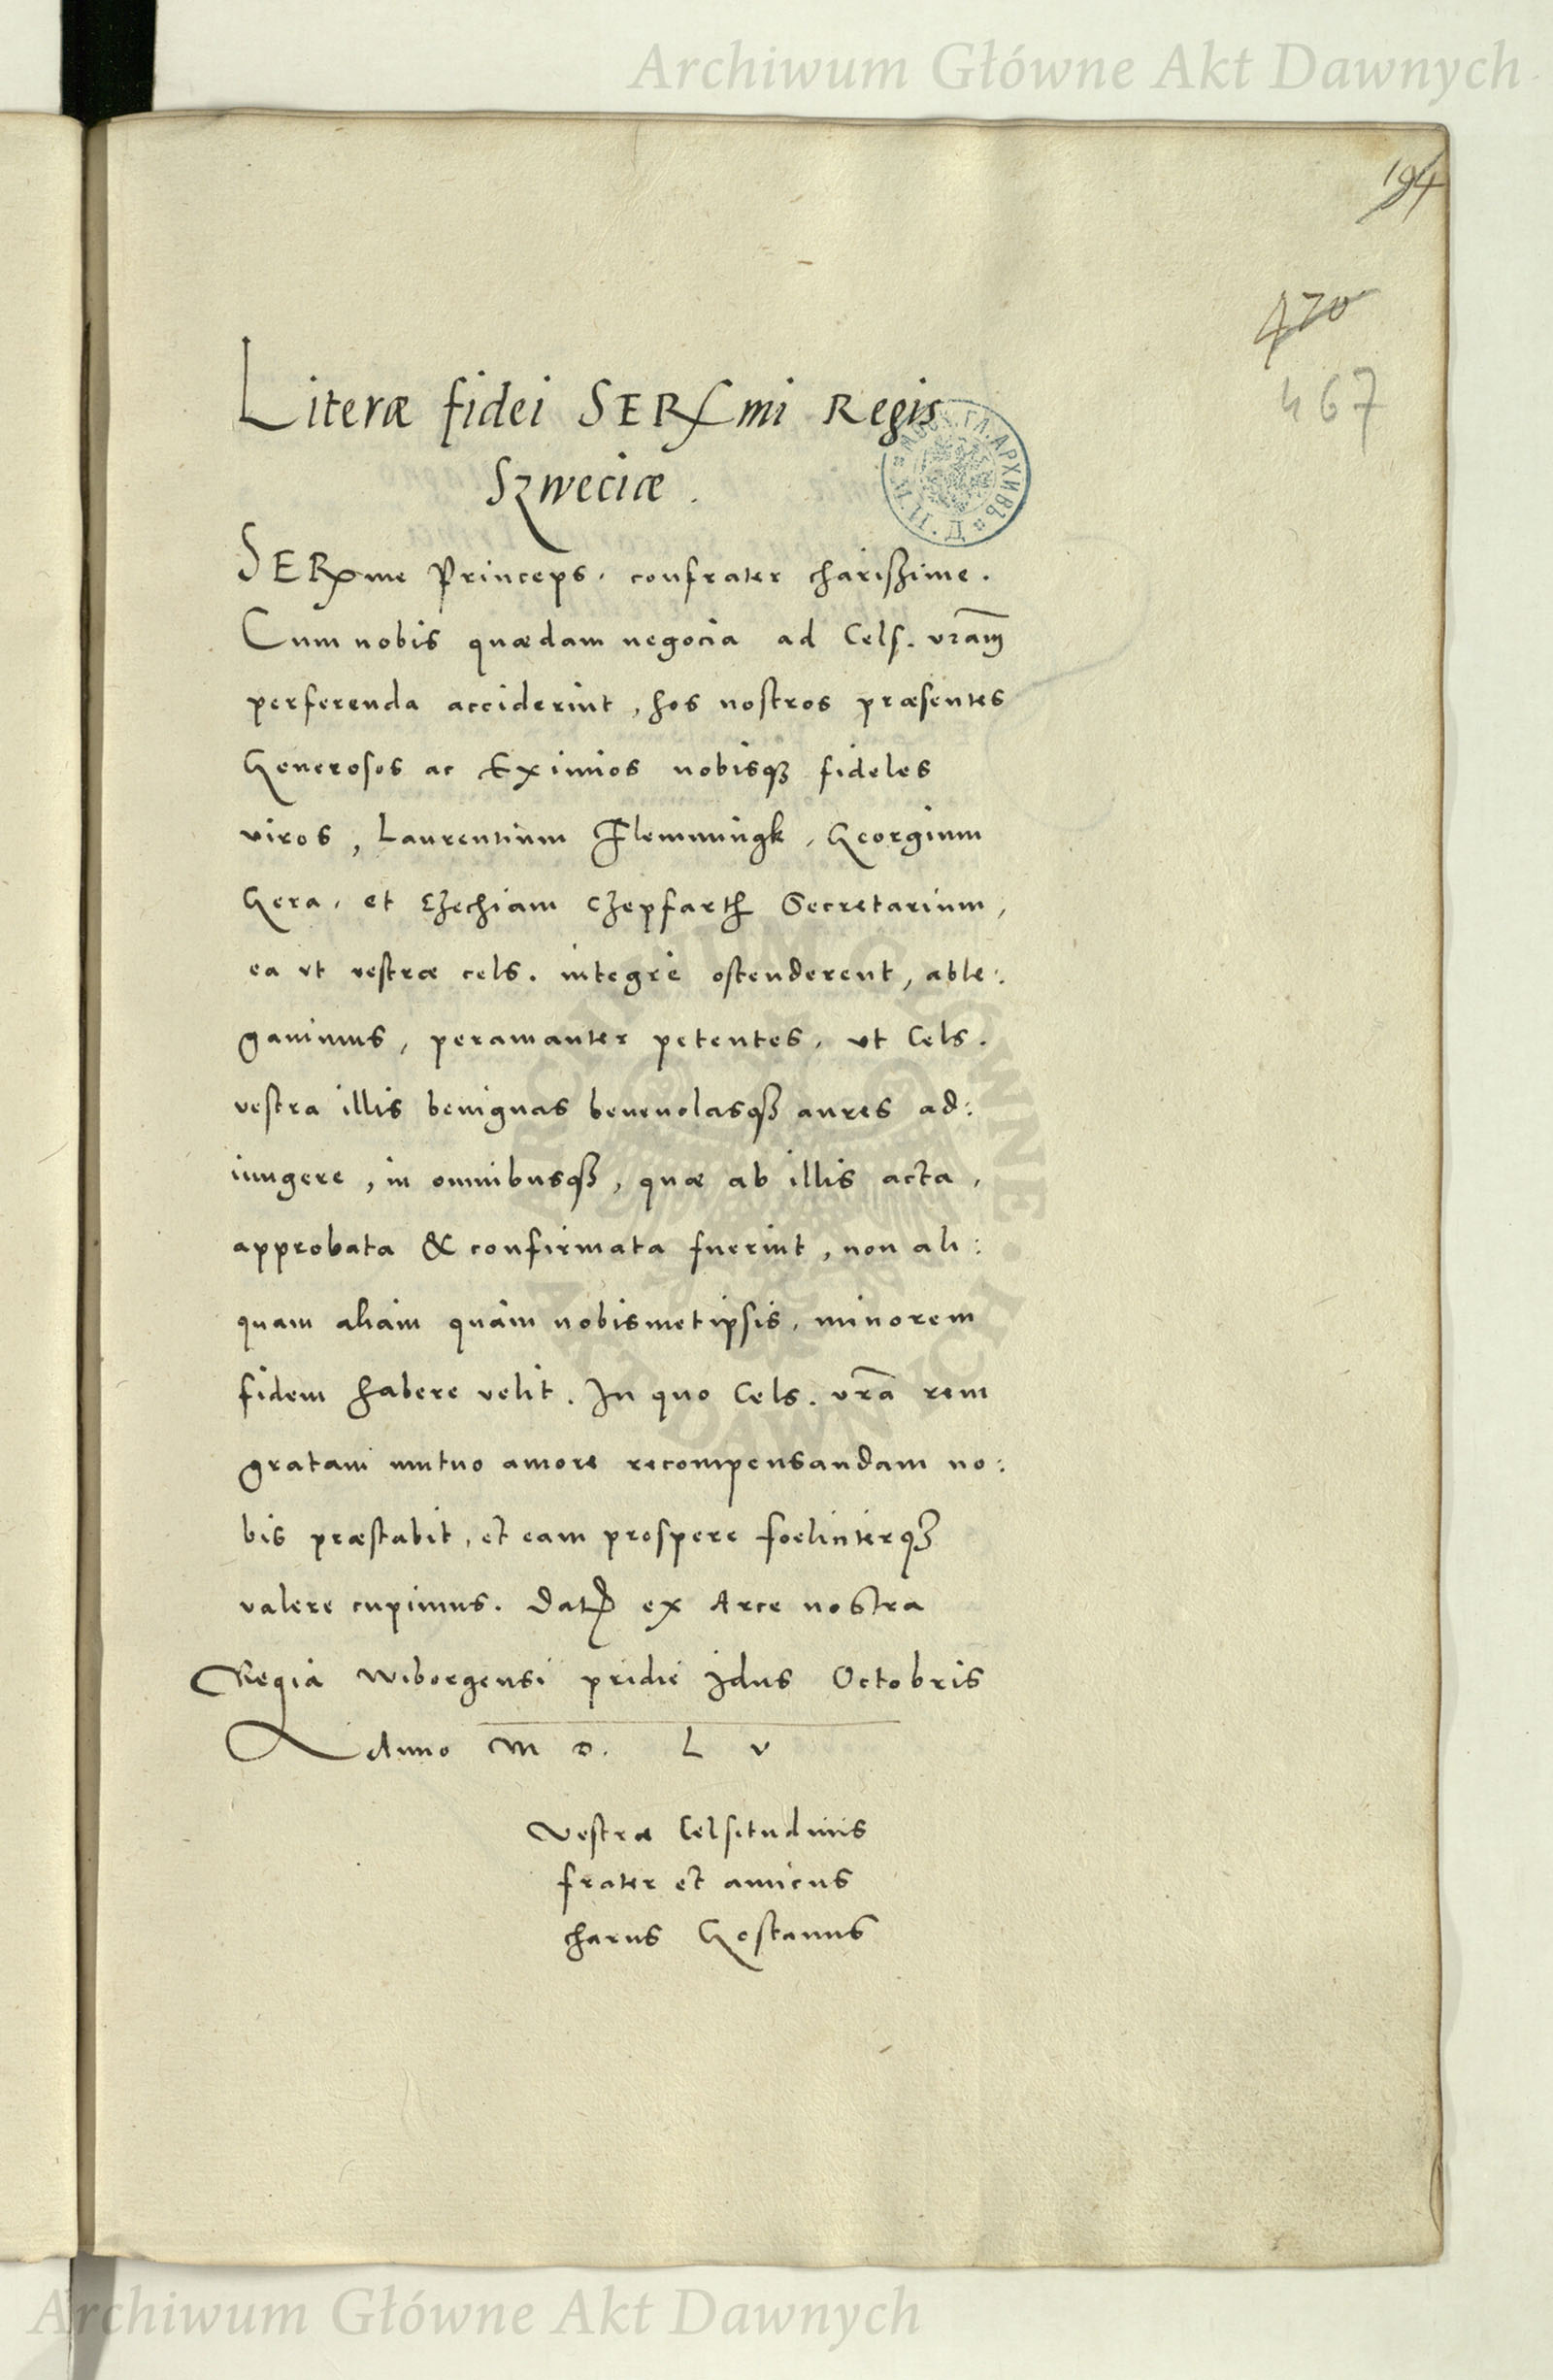 Archiwum Główne Akt Dawnych
194
470
467
Literæ fidei SERmi Regis
Szweciæ.
SERme Princeps, confrater charißime.
Cum nobis quædam negocia ad Cels. vram
perferenda acciderint, hos nostros præsentes
Generosos ac Eximios nobisq3 fideles
viros, Laurentium Flemmingk, Georgium
Gera, et Ezechiam Czepfarth Secretarium,
ea vt vestræ cels. integrè ostenderent, able:
gauimus, peramanter petentes, vt Cels.
vestra illis benignas beneuolasq3 aures ad:
iungere, in omnibusq3, quæ ab illis acta,
approbata & confirmata fuerint, non ali:
quam aliam quàm nobismetipsis, minorem
fidem habere velit. In quo Cels. vrã rem
gratam mutuo amore recompensandam no:
bis præstabit, et eam prospere foeliciterq3
valere cupimus. Dat ex Arce nostra
Regia Wiborgensi pridie Idus Octobris
Anno M D. L V
Vestræ Celsitudinis
frater et amicus
charus Gostauus
ARCHIWUM GŁÓWNE
AKT DAWNYCH
Archiwum Główne Akt Dawnych